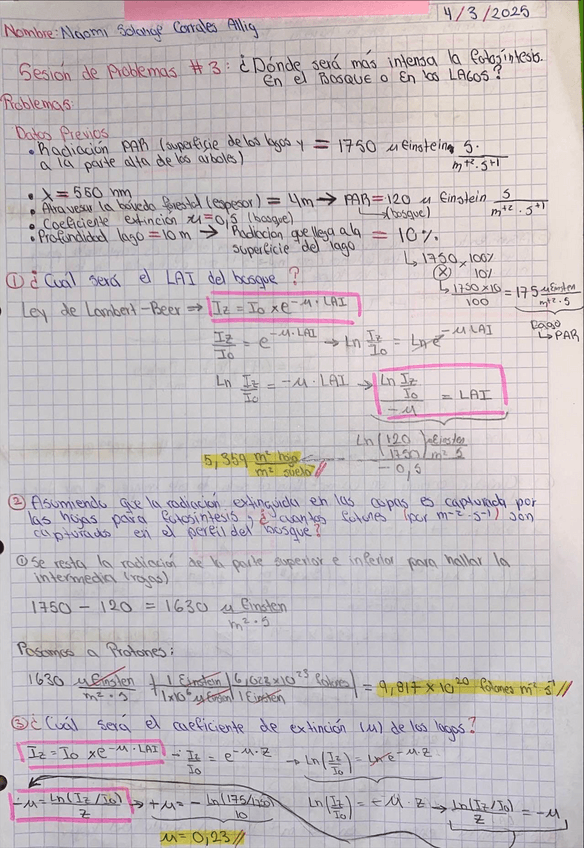 4/3/2025
Nombre: Naomi Solange Corrales Allig
Sesión de Problemas #3: ¿Dónde será más intensa la fotosíntesis.
En el BOSQUE o En los LAGOS?
Problemas:
Datos Previos
• Radiación PAR (superficie de los lagos y = 1750 µ Einstein s.
a la parte alta de los arboles) m+2 . s+1
• λ = 550 nm
• Atravesar la bóveda forestal (espesor) = 4m → PAR = 120 µ Einstein s
m+2 . s+1
• Coeficiente extinción µ = 0,5 (bosque) ↳ (bosque)
• Profundidad lago = 10 m → Radiacion que llega a la = 10%
superficie del lago
↳ 1750 x 100%
X 10%
↳ 1750 x 10 = 175 µ Einsten
100 m+2 . s
Lago
↳ PAR
① ¿Cuál será el LAI del bosque?
Ley de Lambert-Beer ⇒ Iz = Io x e-µ . LAI
Iz/Io = e-µ . LAI → Ln Iz/Io = Ln e-µ LAI
Ln Iz/Io = -µ . LAI → Ln Iz/Io / -µ = LAI
Ln (120/1750) Einsten/m² s
-0,5
5,359 m² hoja/m² suelo //
② Asumiendo que la radiación extinguida en las copas es capturada por
las hojas para fotosíntesis, ¿cuantos fotones (por m-2 . s-1) son
capturados en el perfil del bosque?
① Se resta la radiación de la parte superior e inferior para hallar la
intermedia (hojas)
1750 - 120 = 1630 µ Einsten
m² . s
Pasamos a Protones:
1630 µ Einsten/m² . s | 1 Einstein/1x10⁶ µ Einsten | 6,023 x 10²³ fotones/1 Einstein | = 9,817 x 10²⁰ fotones m-2 s-1 //
③ ¿Cuál será el coeficiente de extinción (µ) de los lagos?
Iz = Io x e-µ . LAI → Iz/Io = e-µ . z → Ln (Iz/Io) = Ln e-µ . z
Ln (Iz/Io) = -µ . z → Ln (Iz/Io)/z = -µ
-µ = Ln (Iz/Io)/z → +µ = - Ln (175/1750)/10
µ = 0,23 //